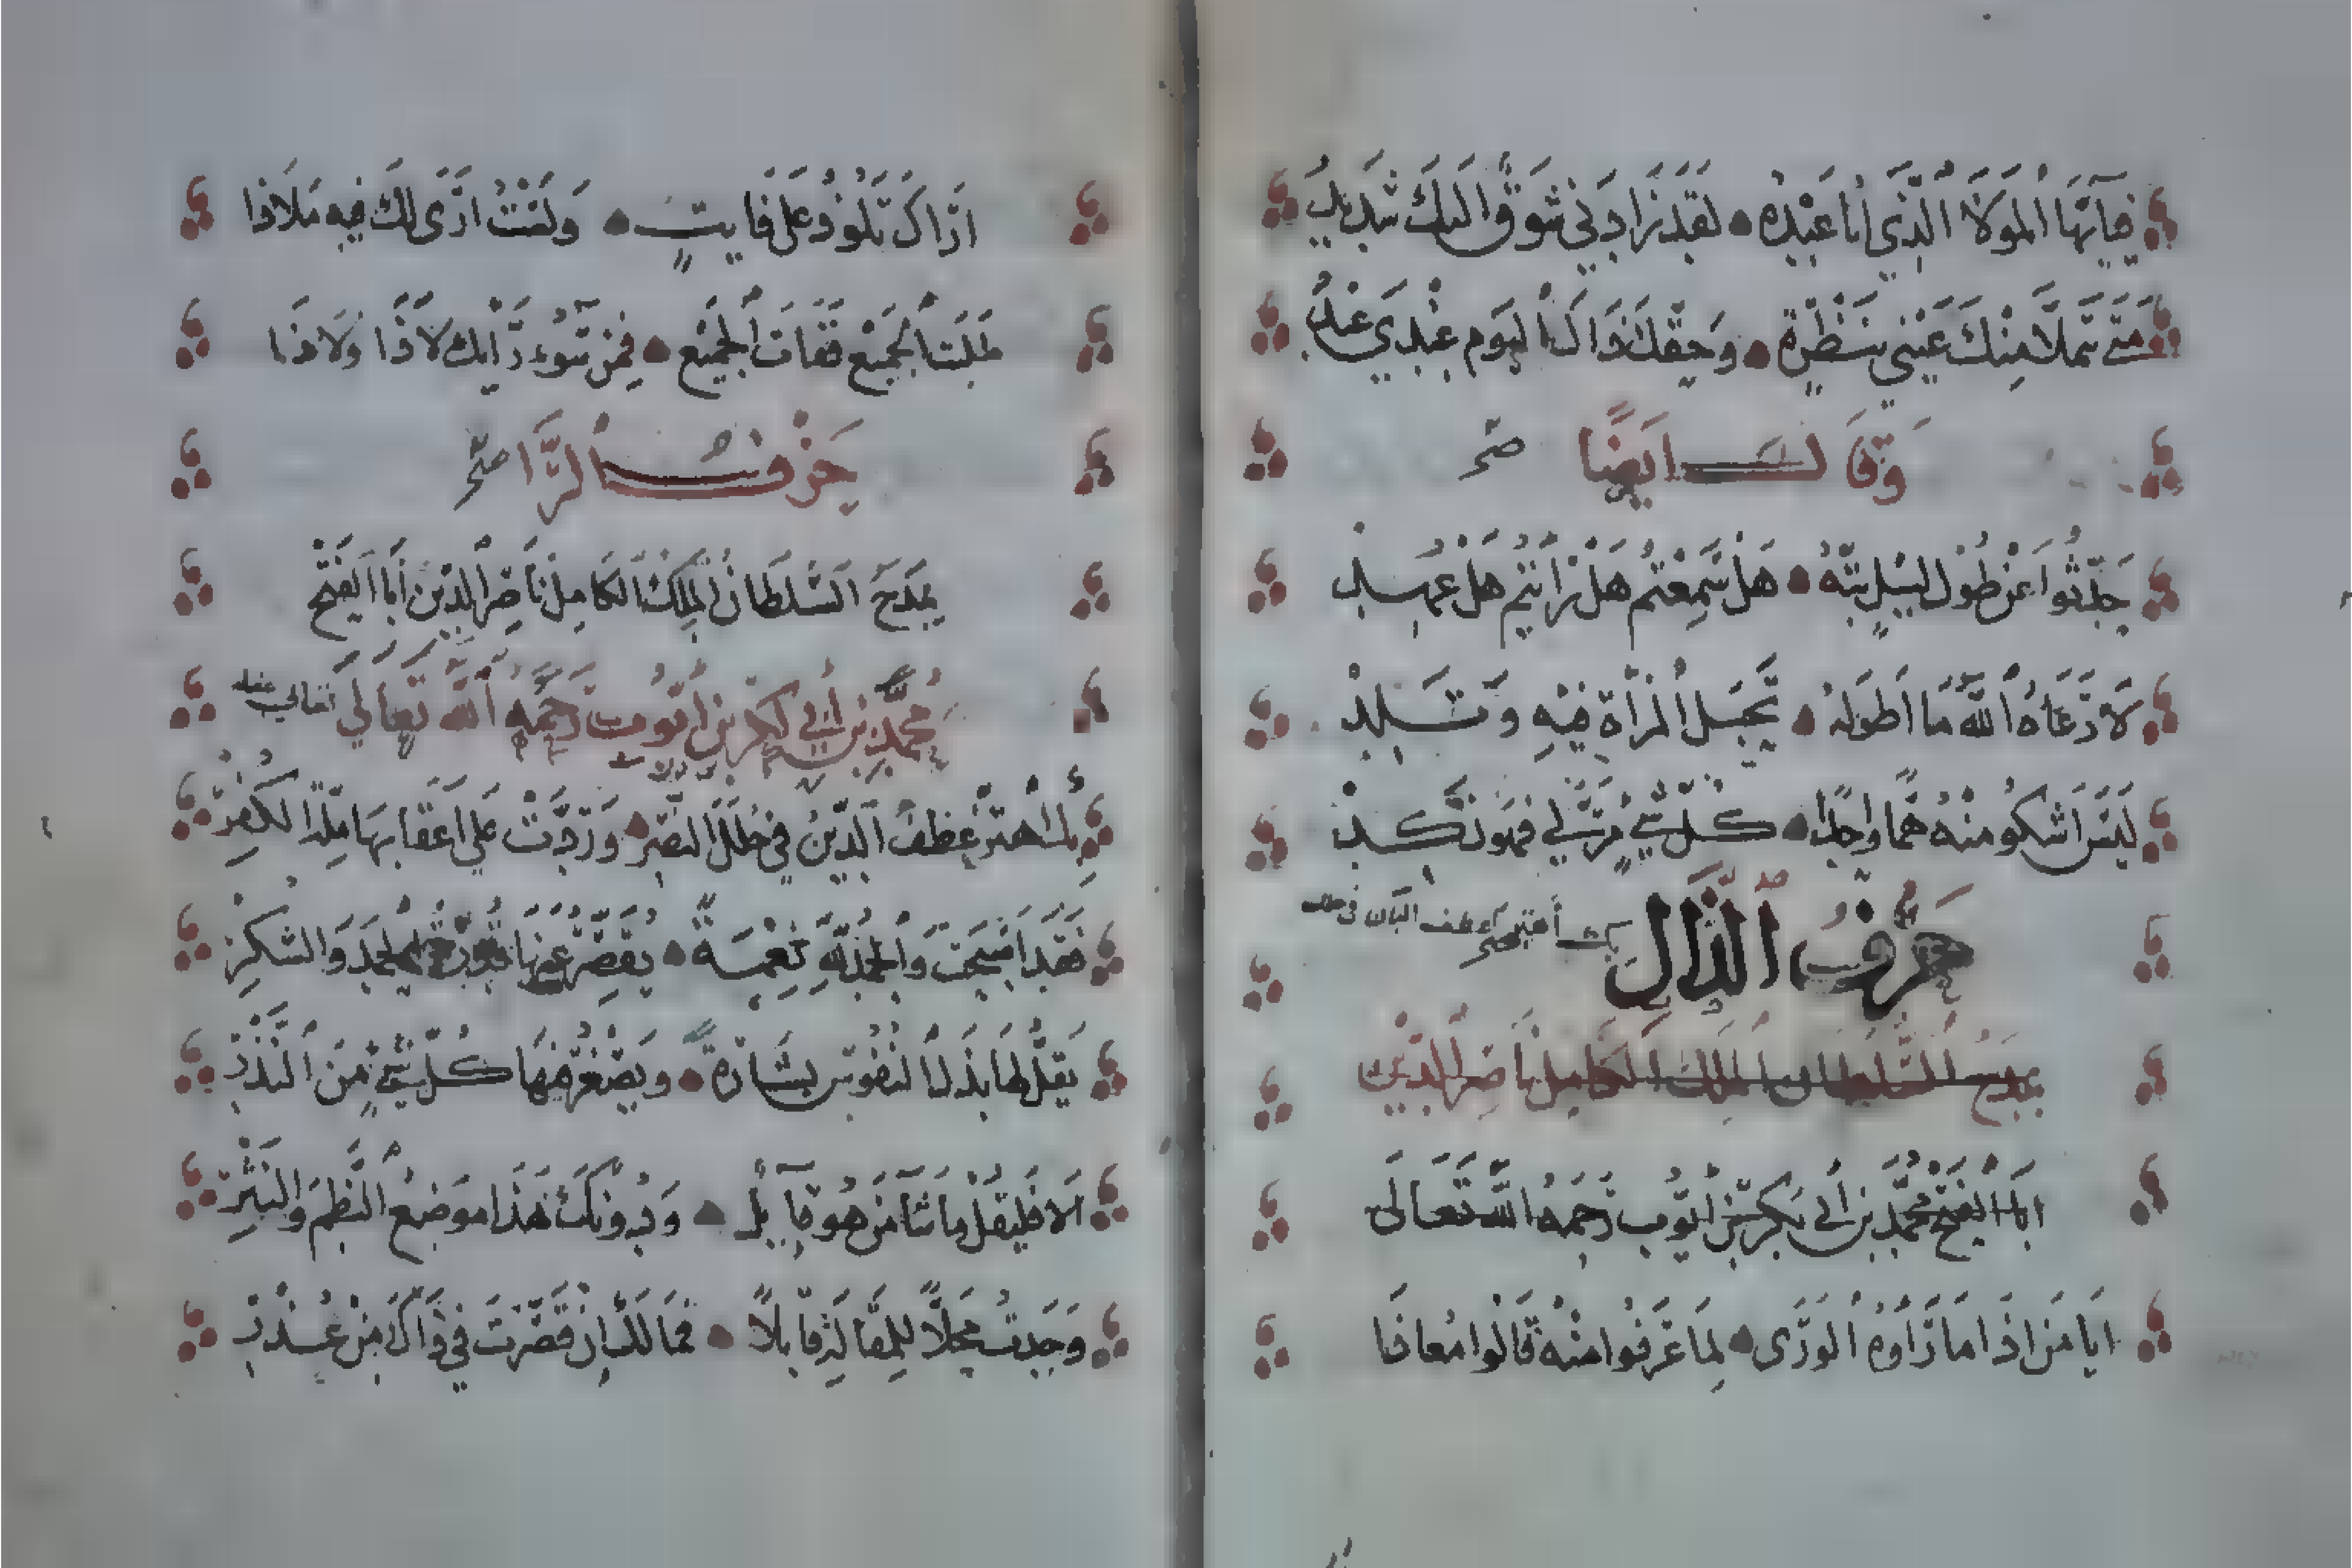 فيا أيها المولا الذي أنا عبده • لقد زادني شوق اليك شديد
متى تتملا منك عيني بنظرة • وحقك ذاك اليوم عندي عيد
وقال ايضا صح
حدثوا عن طول ليل بته • هل سمعتم هل رايتم هل عهد
لا رعاه الله ما اطوله • تحبل المراة فيه وتلد
ليس اشكو منه هما واحدا • كل شي مر بي فهو نكد
حرف الذال
يمدح السلطان الملك الكامل ناصر الدين
ابا الفتح محمد بن أبي بكر بن أيوب رحمه الله تعالى
ايا من اذا ما راوه الورى • لما عرفوا منه قالوا معاذا
اراك تلوذ على فايت • ولست ارى لك فيه ملاذا
طلبت الجميع ففات الجميع • فمن سوء رايك لا ذا ولا ذا
حرف الرا صح
يمدح السلطان الملك الكامل ناصر الدين أبا الفتح
محمد بن أبي بكر بن أيوب رحمه الله تعالى
بك اهتز عطف الدين في حلل النصر • وردت على اعقابها ملة الكفر
فقد اصبحت والحمد لله نعمة • يقصر عنها قدرة الحمد والشكر
يقل لها بذل النفوس بشارة • ويصغر فيها كل شي من النذر
الا فليقل ما شا من هو قايل • ودونك هذا موضع النظم والنثر
وجدت محلا للمقالة قابلا • فمالك ان قصرت في ذاك من عذر